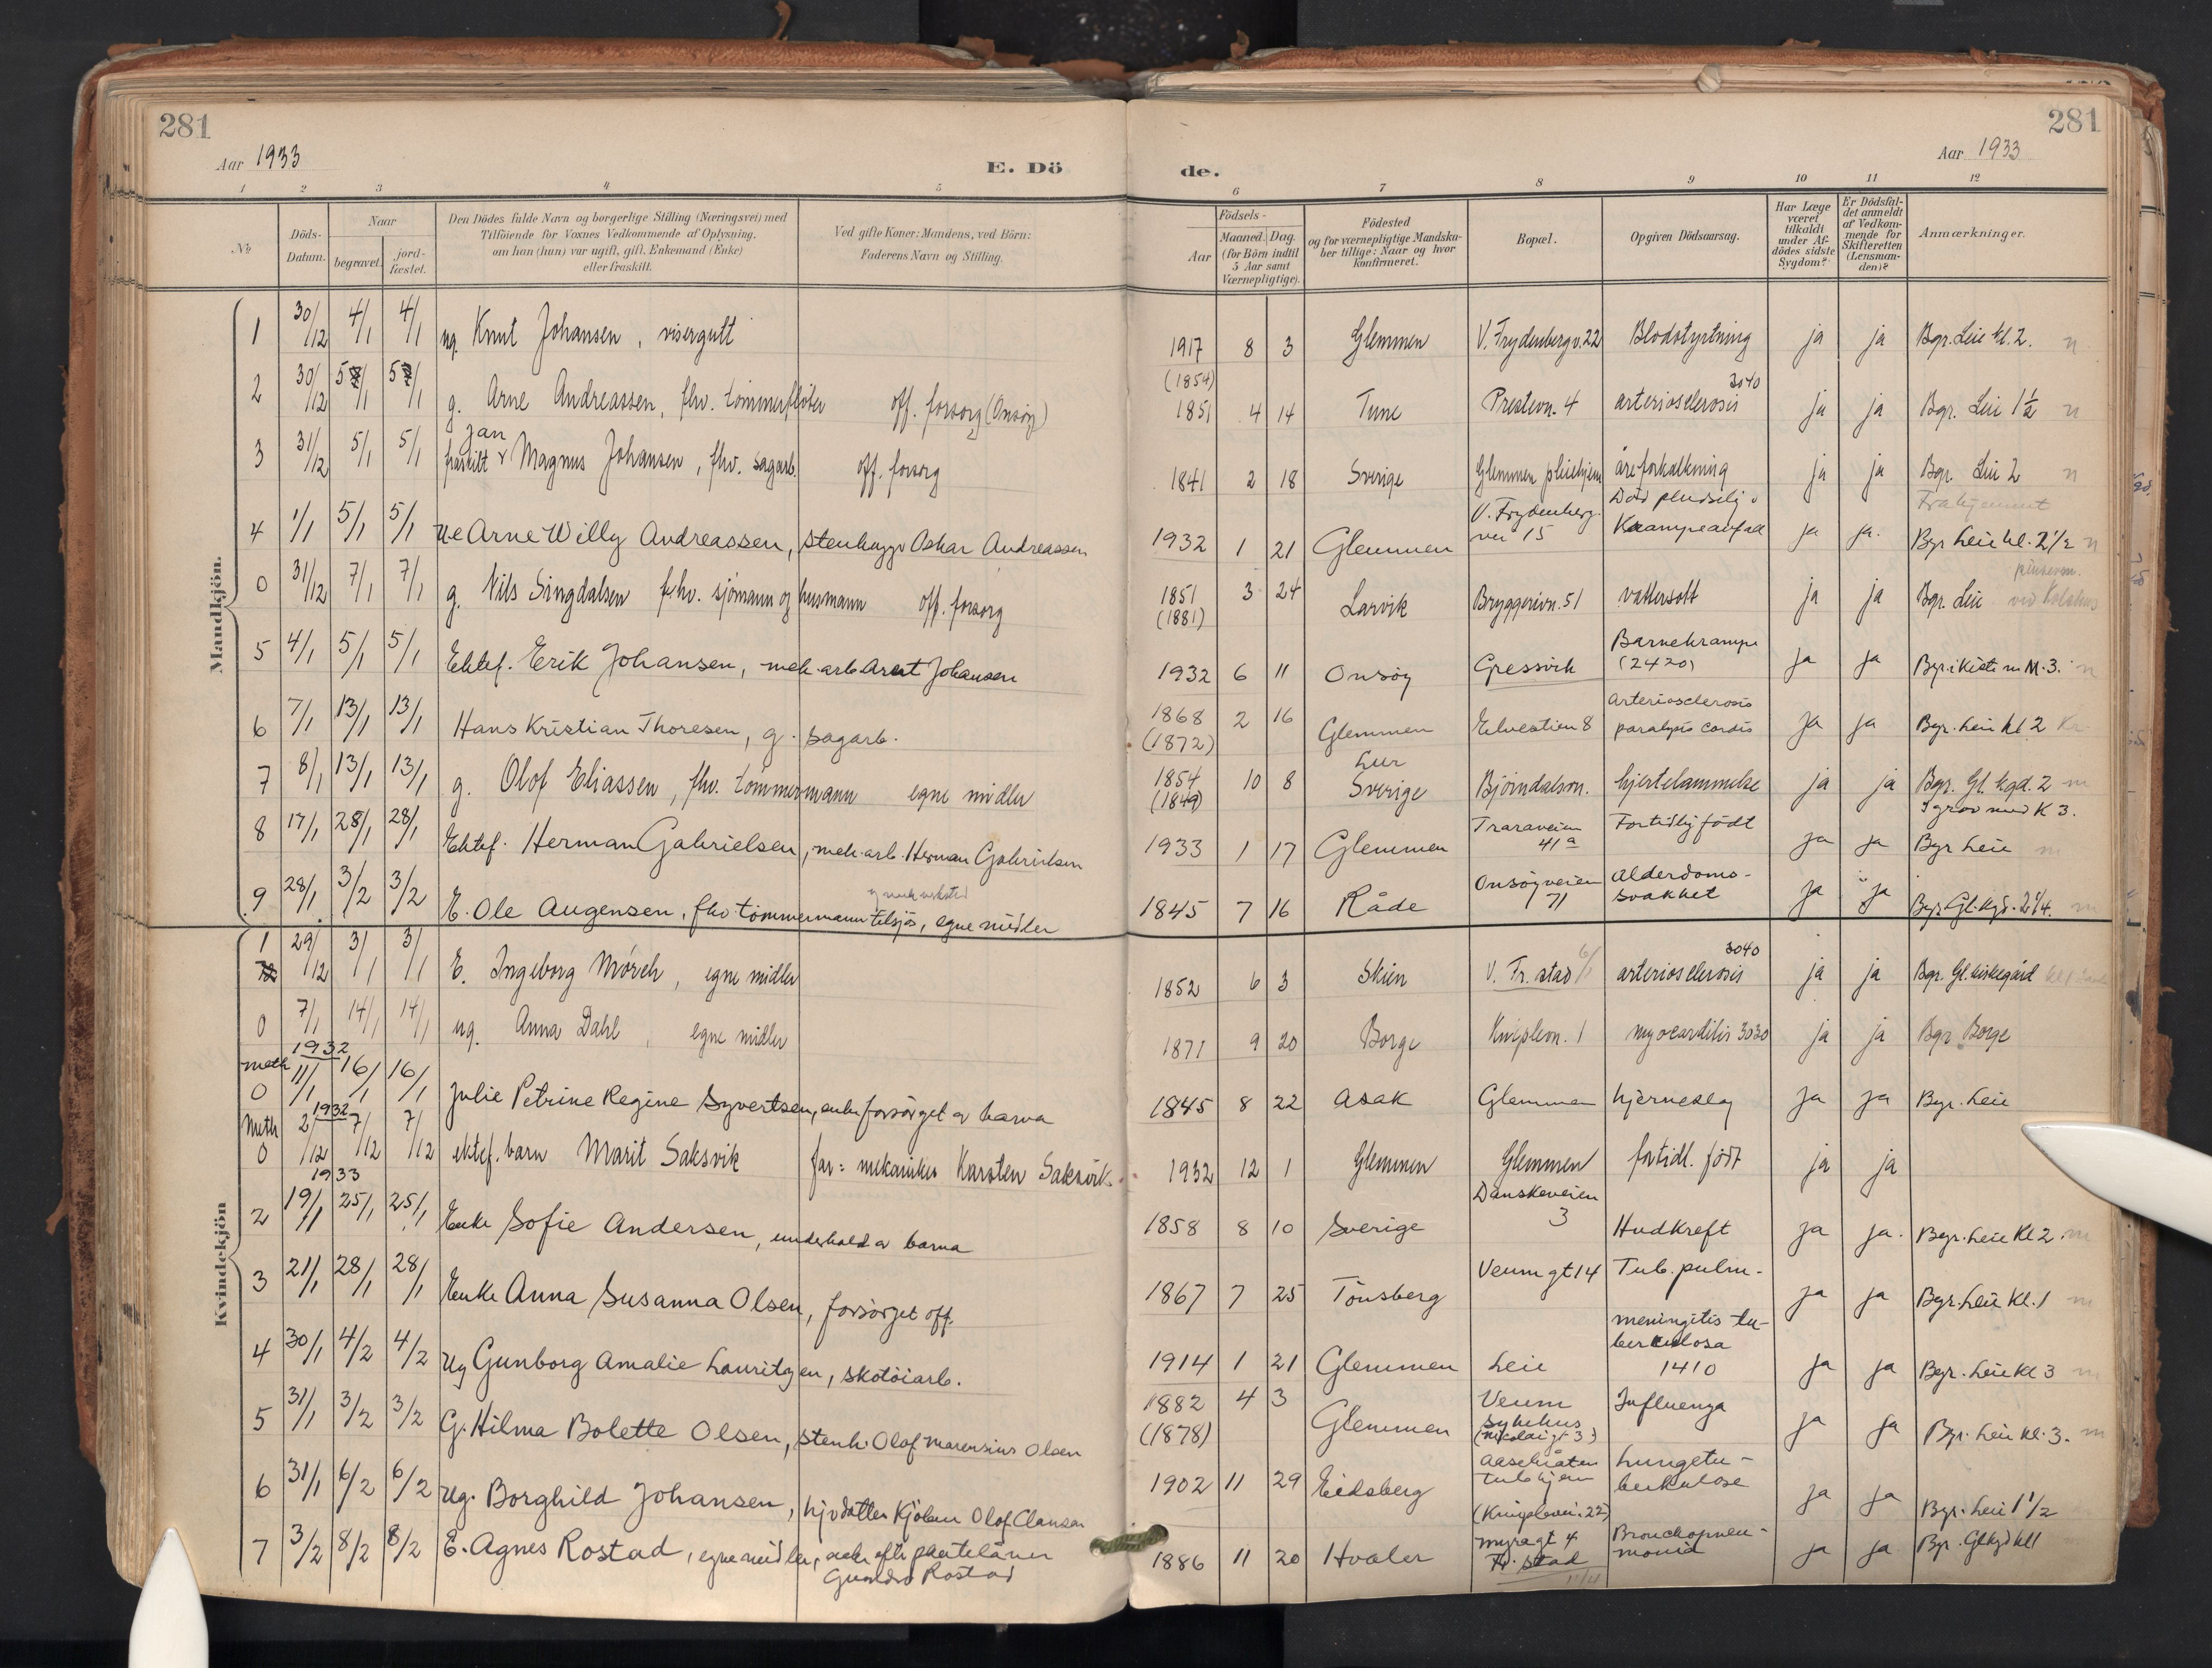 281
281
Aar 1933
E. Dö
de.
Aar 1933
1 2 3 4 5 6 7 8 9 10 11 12
No
Döds-Datum.
Naar
begravet.
jord-fæstet.
Den Dödes fulde Navn og borgerlige Stilling (Næringsvei) med
Tilföiende for Voxnes Vedkommende af Oplysning,
om han (hun) var ugift, gift, Enkemand (Enke)
eller fraskilt.
Ved gifte Koner: Mandens, ved Börn:
Faderens Navn og Stilling.
Födsels-
Aar
Maaned. Dag.
(for Börn indtil
5 Aar samt
Værnepligtige).
Födested
og for værnepligtige Mandska-
ber tillige: Naar og hvor
konfirmeret.
Bopæl.
Opgiven Dödsaarsag.
Har Læge
været
tilkaldt
under Af-
dödes sidste
Sygdom?
Er Dödsfal-
det anmeldt
af Vedkom-
mende for
Skifteretten
(Lensman-
den)?
Anmærkninger.
Mandkjön.
1 30/12 4/1 4/1 ug. Knut Johansen, visergutt 1917 8 3 Glemmen V. Frydenbergv. 22 Blodstyrtning ja ja Bgr. Leie kl. 2. n
2 30/12 5/1 5/1 g. Arne Andreassen, fhv. tömmerflöter off. forsorg (Onsöy) (1854) 1851 4 14 Tune Prestevn. 4 arteriosclerosis 3040 ja ja Bgr. Leie 1 1/2 n
3 31/12 5/1 5/1 fraskilt Jan Magnus Johansen, fhv. sagarb. off. forsorg 1841 2 18 Sverige Glemmen pleiehjem åreforkalkning ja ja Bgr. Leie 2 n
Fra hjemmet
4 1/1 5/1 5/1 Ue Arne Willy Andreassen, stenhugger Oskar Andreassen 1932 1 21 Glemmen V. Frydenberg-vei 15 Död pludselig Krampeanfall ja ja. Bgr Leie kl. 2 1/2 n
0 31/12 7/1 7/1 g. Nils Singdalsen fhv. sjömann og husmann off. forsorg 1851 (1881) 3 24 Larvik Bryggerivn. 51 vattersott ja ja Bgr. Leie
5 4/1 5/1 5/1 Ektef. Erik Johansen, mek. arb Arent Johansen 1932 6 11 Onsöy Gressvik Barnekrampe (2420) ja ja Bgr. i kiste m M. 3. n
6 7/1 13/1 13/1 Hans Kristian Thoresen, g. sagarb. 1868 (1872) 2 16 Glemmen Elvestien 8 Arteriosclerosis paralysis cordis ja ja Bgr. Leie kl 2
7 8/1 13/1 13/1 g. Olof Eliassen, fhv. tömmermann egne midler 1854 (1849) 10 8 Lur Sverige Björndalsvn. hjertelammelse ja ja Bgr. Gl. kgd. 2
I grav med K 3.
8 17/1 28/1 28/1 Ektef. Herman Gabrielsen, mek. arb. Herman Gabrielsen 1933 1 17 Glemmen Traraveien 41a Fortidlig födt ja ja Bgr Leie
9 28/1 3/2 3/2 E. Ole Augensen, fhv tömmermann tilsjös, egne midler 1845 7 16 Råde Onsöyveien 71 Alderdoms-svakhet ja ja Bgr. Gl. kgd. 2 1/4.
Kvindekjön
1 29/12 3/1 3/1 E. Ingeborg Mörch, egne midler 1852 6 3 Skien V. Fr. stad 6/1 arteriosclerosis 3040 ja ja Bgr. Gl. kirkegård
0 7/1 14/1 14/1 ug. Anna Dahl, egne midler 1871 9 20 Borge Kniplevn. 1 myocarditis 3030 ja ja Bgr Borge
1932
meth 0 11/1 16/1 16/1 Julie Petrine Regine Syvertsen, enke forsörget av barna 1845 8 22 Asak Glemmen hjerneslag ja ja Bgr. Leie
1932
Meth 0 2/12 7/12 7/12 ektef. barn Marit Saksvik far: mekaniker Karsten Saksvik. 1932 12 1 Glemmen Glemmen fortidl. födt ja ja
1933
2 19/1 25/1 25/1 Enke Sofie Andersen, underhold av barna 1858 8 10 Sverige Danskeveien 3 Hudkreft ja ja. Bgr. Leie Kl 2
3 21/1 28/1 28/1 Enke Anna Susanna Olsen, forsörget off. 1867 7 25 Tönsberg Veumgt 14 Tub. pulm. ja ja Bgr. Leie Kl. 1
4 30/1 4/2 4/2 Ug Gunborg Amalie Lauritzen, skotöiarb. 1914 1 21 Glemmen Leie meningitis tu-berculosa 1410 ja ja Bgr. Leie Kl 3
5 31/1 3/2 3/2 G. Hilma Bolette Olsen, stenh. Olof Marensius Olsen 1882 (1878) 4 3 Glemmen Veum sykehus (Nicolaigt 3) Influenza ja ja Bgr. Leie kl. 3.
6 31/1 6/2 6/2 Ug. Borghild Johansen, 1902 11 29 Eidsberg tub hjem (Knipleveien 22) Lungetu-berkulose ja ja Bgr. Leie 1 1/2
7 3/2 8/2 8/2 E. Agnes Rostad, egne midler, Rostad 1886 11 20 Hvaler Myragt 4 Fr. stad Bronchopneu-monia ja ja Bgr. Gl kgd kl 1